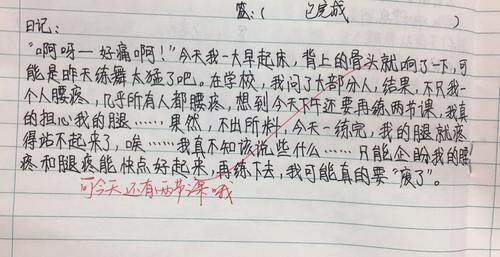 签:( 已完成 )
日记:
“啊呀一好痛啊!”今天我一大早起床,背上的骨头就响了一下,可
能是昨天练舞太猛了吧。在学校,我问了大部分人,结果,不只我一
个人腰疼,几乎所有人都腰疼,想到今天下午还要再练两节课,我真
的担心我的腿……果然,不出所料,今天一练完,我的腿就疼
得站不起来了,唉……我真不知该说些什么……只能企盼我的腰
疼和腿疼能快点好起来,再练下去,我可能真的要“废了”。
可今天还有两节课哦